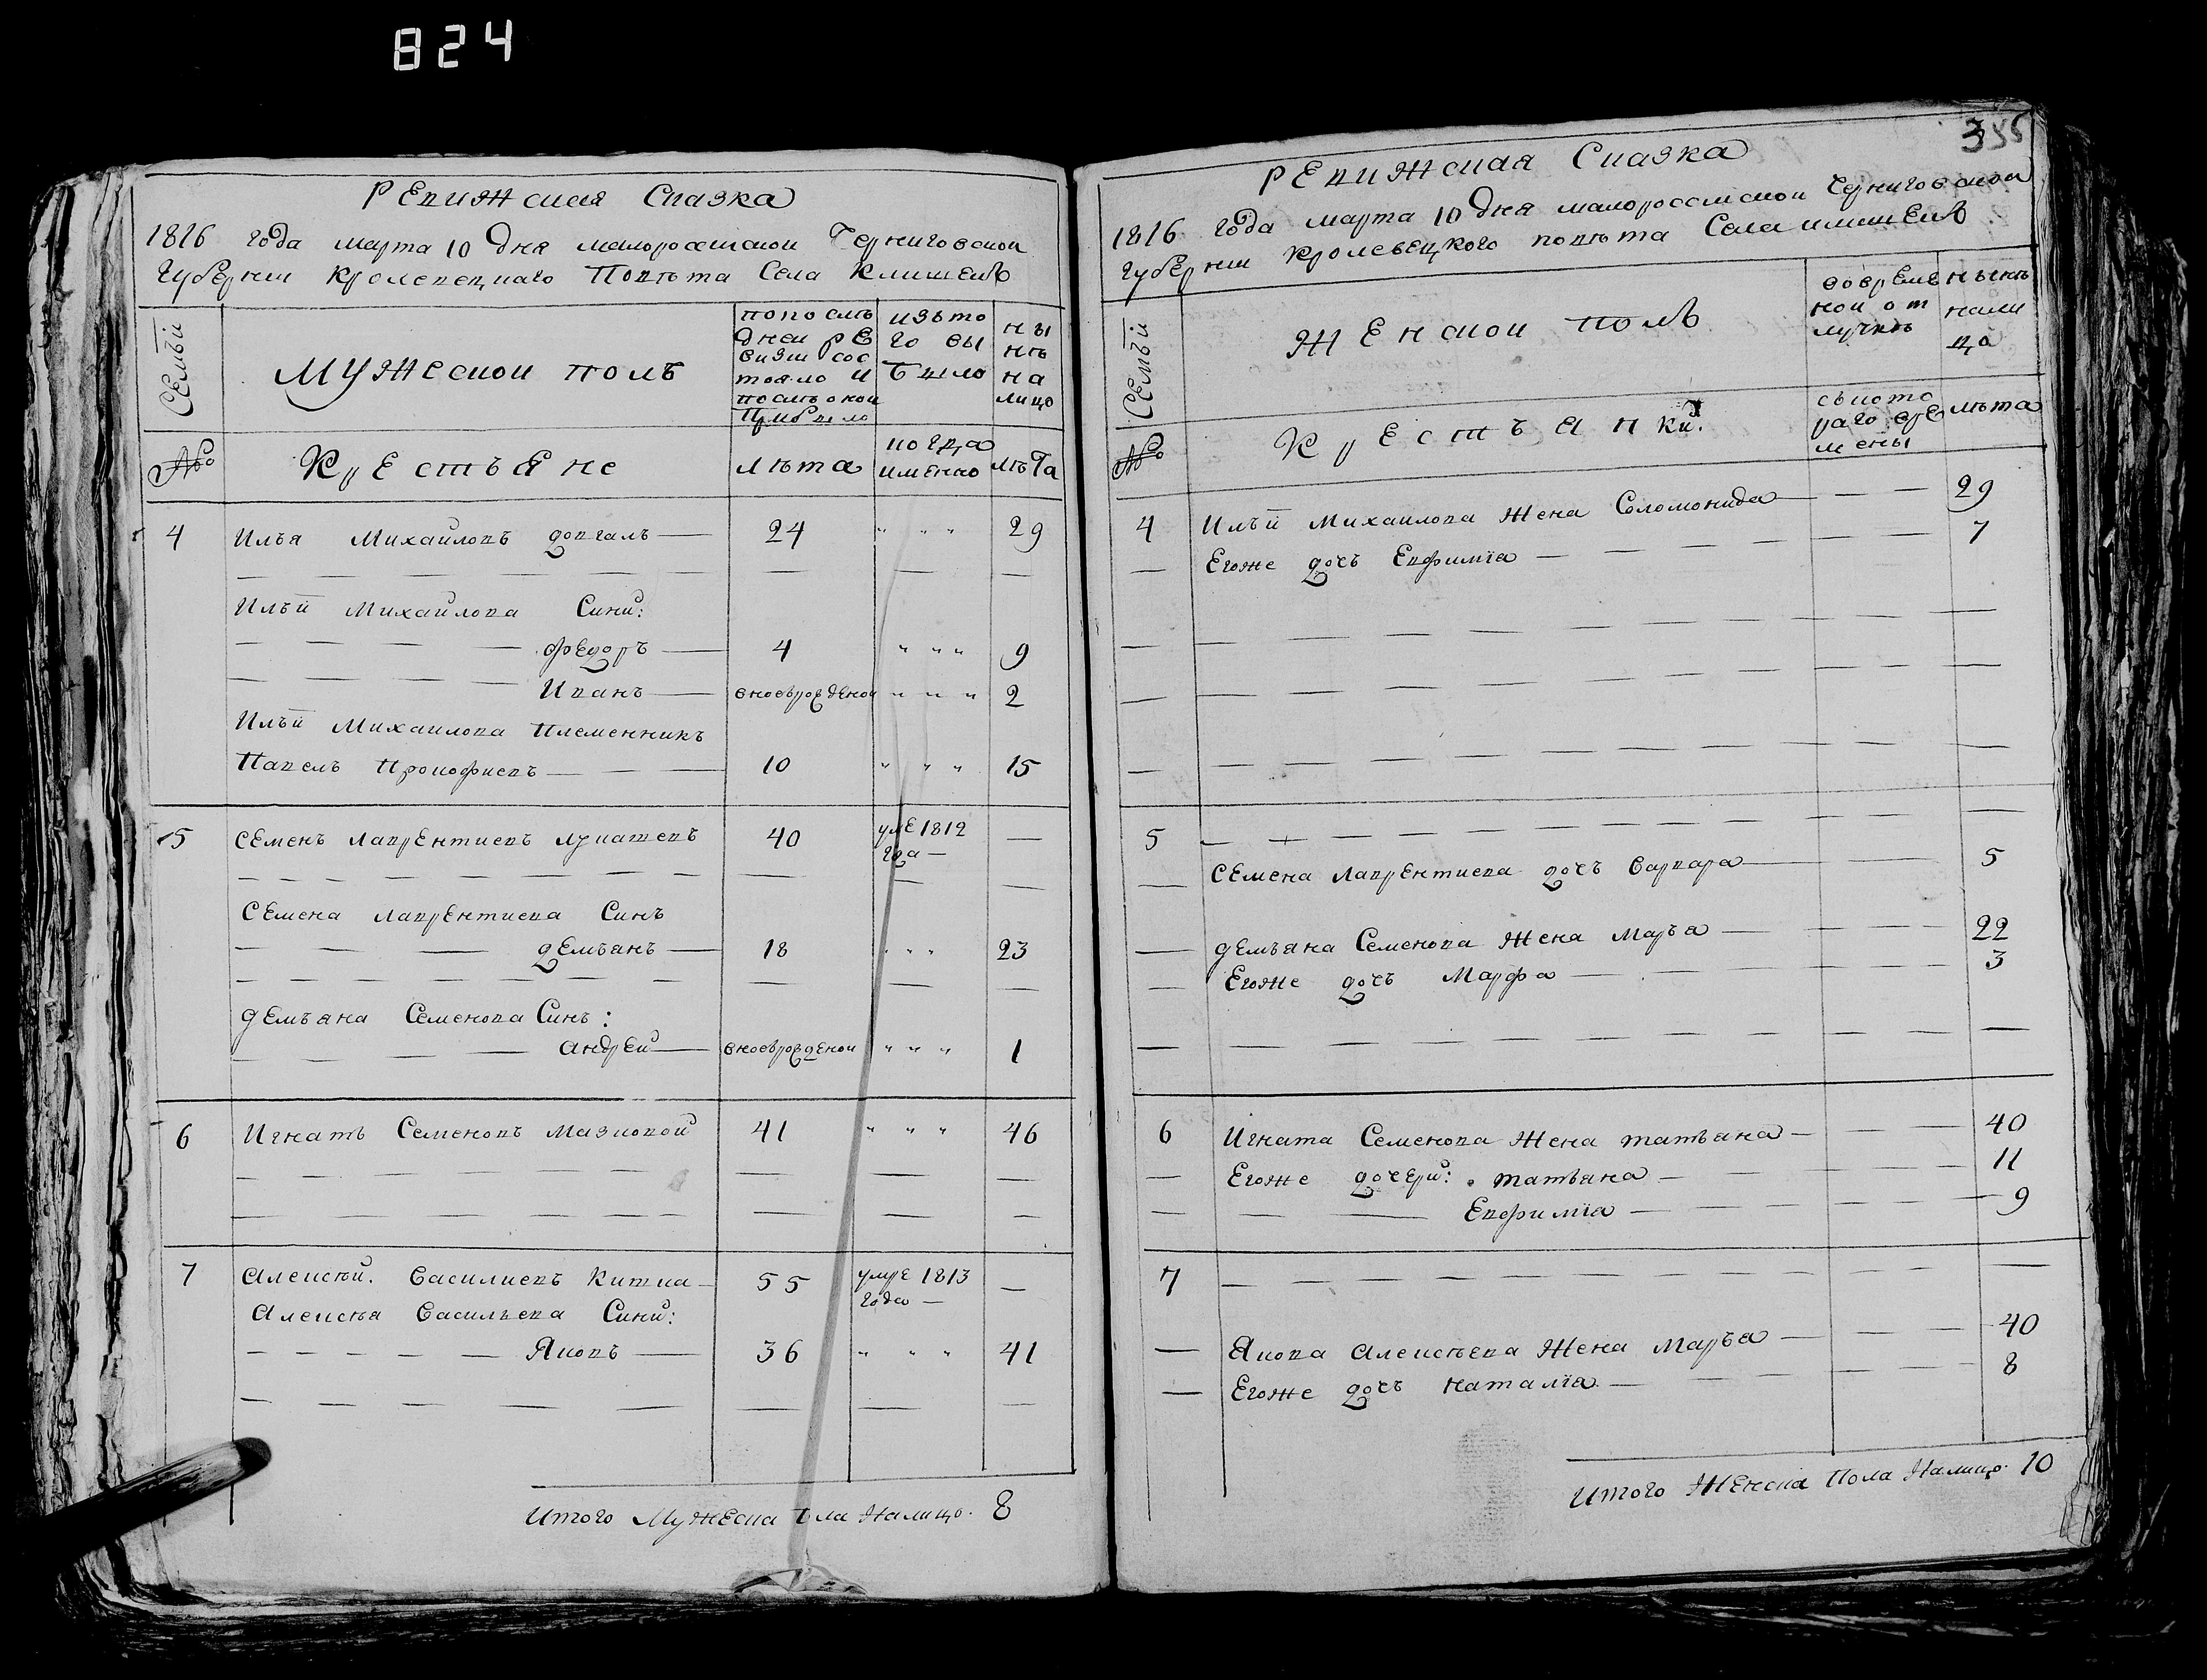 824
РЕвижская Сказка
1816 года марта 10 дня малороссийской Черниговской
Губернии Кролевецкаго Повѣта Села Клишекъ
Семьи
Мужеской полъ
по последней ревизии состояло и послѣ оной прибыло
изъ того выбыло
нынѣ на лицо
№
Крестьяне
лѣта
когда именно
лѣта
4 Илья Михайловъ довгаль 24 " " " 29
Ильи Михайлова Сини:
федоръ 4 " " " 9
Иванъ вновьрожденой " " " 2
Ильи Михаилова Племенникъ
Павелъ Прокофиевъ 10 " " " 15
5 Семенъ Лаврентиевъ лукашевъ 40 умре 1812 года —
Семена Лаврентиева Синъ
демьянъ 18 " " " 23
демьяна Семенова Синъ:
андрей вновьрожденой " " " 1
6 Игнатъ Семеновъ мазковой 41 " " " 46
7 алексѣй. Василиевъ Китка 55 умре 1813 года —
алексѣя Васильева Сини:
Яковъ 36 " " " 41
Итого Мужеска пола Налицо. 8
335
РЕвижская Сказка
1816 года марта 10 дня малороссийской Черниговской
Губернии Кролевецкого повѣта Села Клишекъ
Семьи
Женской полъ
во временной отлучкѣ
нынѣ налицо
№
Крестьянки.
съ которого времены
лѣта
4 Ильи Михаилова Жена Соломонида — — 29
Егоже дочь Евфимїа — — 7
5
Семена Лаврентиева дочь Варвара 5
демьяна Семенова Жена Марья — — 22
Егоже дочь Марфа 3
6 Игната Семенова Жена татьяна — — 40
Егоже дочери: татьяна 11
Евфимїа 9
7
Якова алексѣева Жена Марья — — 40
Егоже дочь наталїа — 8
Итого Женска Пола Налицо. 10